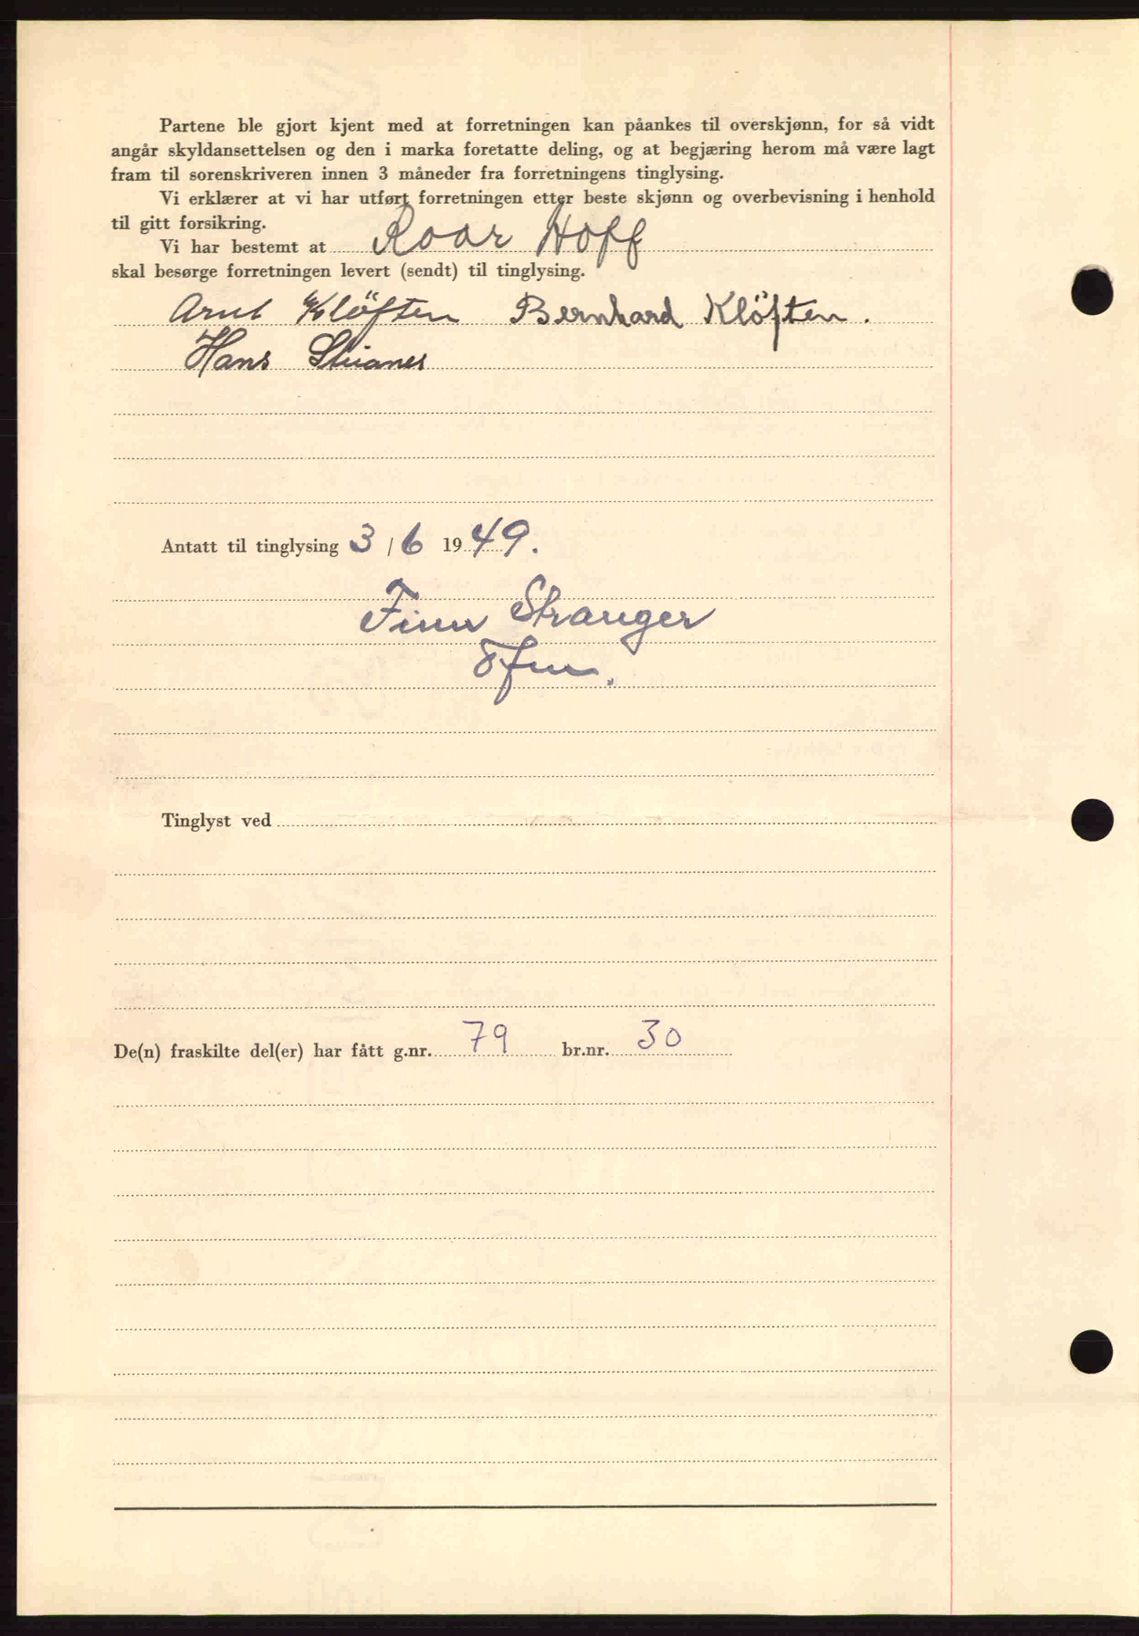 Partene ble gjort kjent med at forretningen kan påankes til overskjønn, for så vidt
angår skyldansettelsen og den i marka foretatte deling, og at begjæring herom må være lagt
fram til sorenskriveren innen 3 måneder fra forretningens tinglysing.
Vi erklærer at vi har utført forretningen etter beste skjønn og overbevisning i henhold
til gitt forsikring.
Vi har bestemt at Roar Hoff
skal besørge forretningen levert (sendt) til tinglysing.
Arnt Kløften Bernhard Kløften.
Hans
Antatt til tinglysing 3/6 1949.
Finn Stranger
Tinglyst ved
De(n) fraskilte del(er) har fått g.nr. 79 br.nr. 30